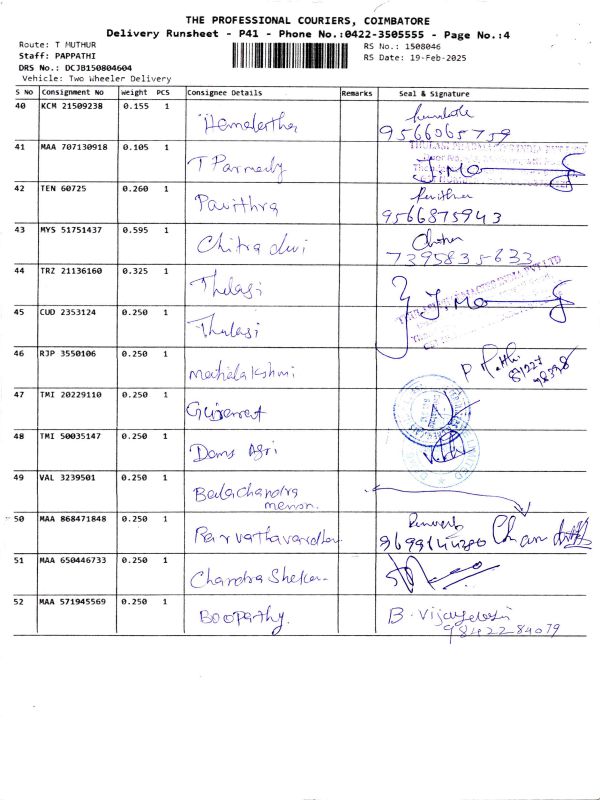 THE PROFESSIONAL COURIERS, COIMBATORE
Delivery Runsheet - P41 - Phone No.:0422-3505555 - Page No.:4
Route: T MUTHUR
RS No.: 1508046
Staff: PAPPATHI
RS Date: 19-Feb-2025
DRS No.: DCJB150804604
Vehicle: Two Wheeler Delivery
S No Consignment No Weight PCS Consignee Details Remarks Seal & Signature
40 KCM 21509238 0.155 1 Hemalatha
9566065759
41 MAA 707130918 0.105 1 T Parmedy
42 TEN 60725 0.260 1 Pavithra
9566875943
43 MYS 51751437 0.595 1 Chitra devi
7395835633
44 TRZ 21136160 0.325 1 Thulasi
45 CUD 2353124 0.250 1 Thulasi
46 RJP 3550106 0.250 1 Mahalakshmi
47 TMI 20229110 0.250 1
48 TMI 50035147 0.250 1 Doms Agri
49 VAL 3239501 0.250 1 Balachandra
menon.
50 MAA 868471848 0.250 1 Parvathavardhan
51 MAA 650446733 0.250 1 Chandra Shekar
52 MAA 571945569 0.250 1 Boopathy. B. Vijayelaxi
9842284079